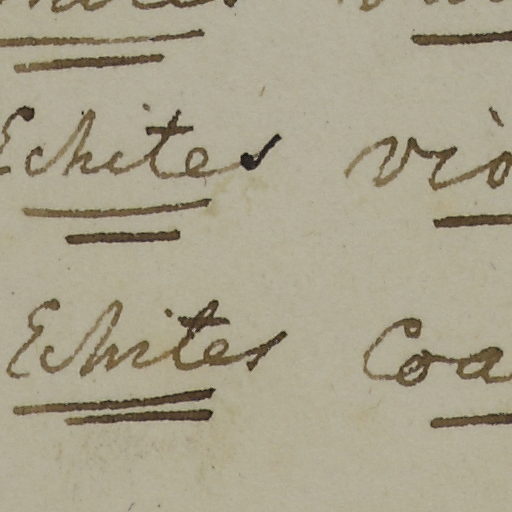 Echites vio
Echites Coa